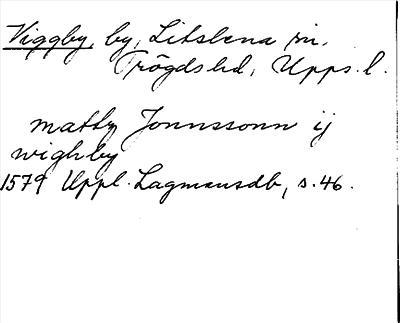 Viggby, by, Litslena sn.
Trögds hd, Upps. l.
matby Jonnssonn ij
wighby
1579 Uppl. Lagmansdb, s. 46.